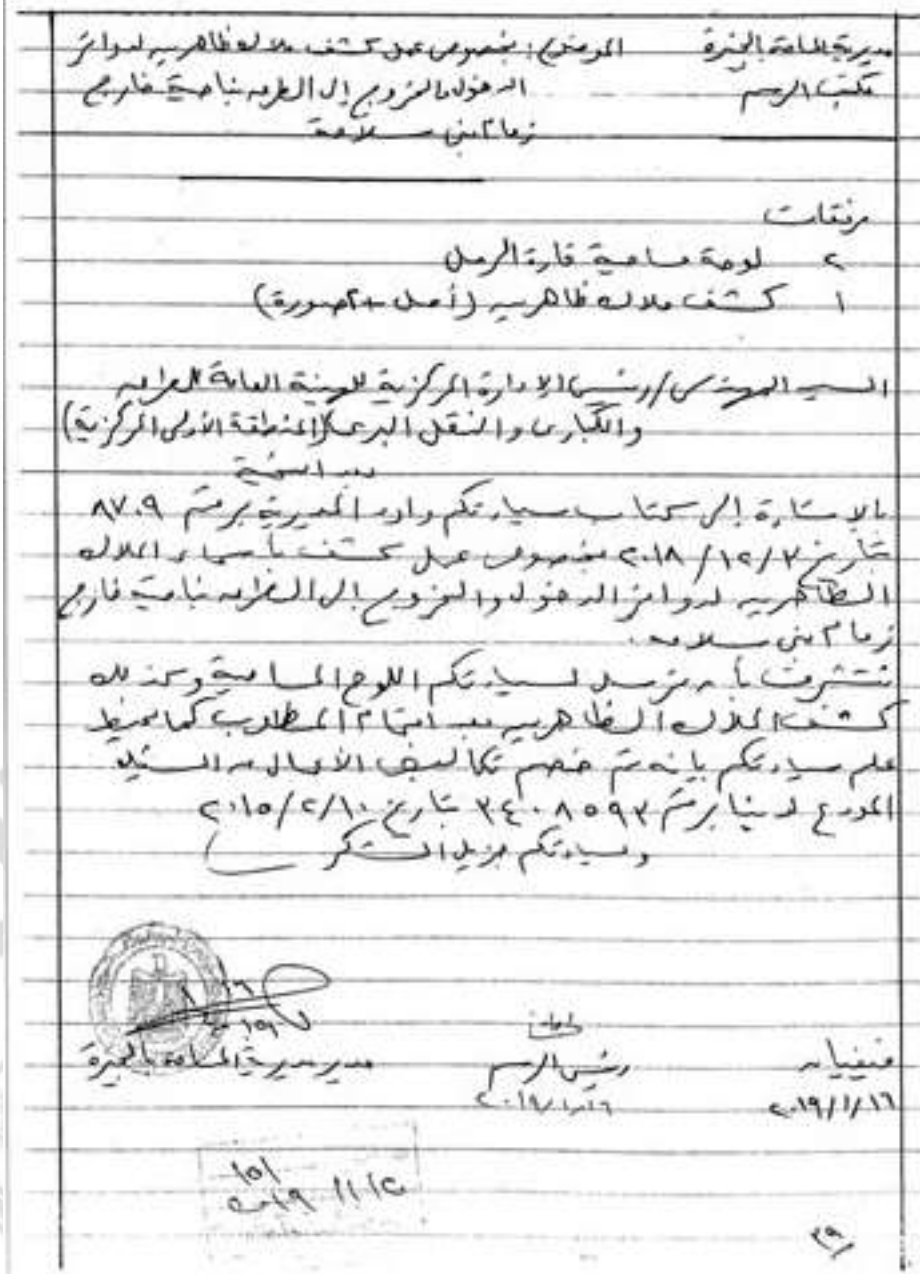 مديرية المساحة بالجيزة
مكتب الرسم
الموضوع: بخصوص عمل كشف ملاك ظاهرين لدوائر
الدخول والخروج إلى الطريق بناحية خارج
زمام بنى سلامة
مرفقات
٢ لوحة مساحية قارة الرمل
١ كشف ملاك ظاهرين (أصل + ٢ صورة)
السيد المهندس / رئيس الإدارة المركزية للهيئة العامة للطرق
والكبارى والنقل البرى (المنطقة الأولى المركزية)
بعد التحية
بالإشارة إلى كتاب سيادتكم وارد المديرية برقم ٨٧٠٩
بتاريخ ٢٠١٨/١٢/٣ بخصوص عمل كشف بأسماء الملاك
الظاهرين لدوائر الدخول والخروج إلى الطريق بناحية خارج
زمام بنى سلامه.
نتشرف بأن نرسل لسيادتكم اللوح المساحية وكذلك
كشف الملاك الظاهرين بعد اتمام المطلوب كما نحيط
علم سيادتكم بانه تم خصم تكاليف الأعمال من الشيك
المودع لدينا برقم ٣٤٠٨٥٩٣ بتاريخ ٢٠١٥/٢/١٠
ولسيادتكم جزيل الشكر
رئيس الرسم
مدير مديرية المساحة بالجيزة
٢٠١٩/١/١٦
٢٠١٩/١/١٦
١٥١
٣٩